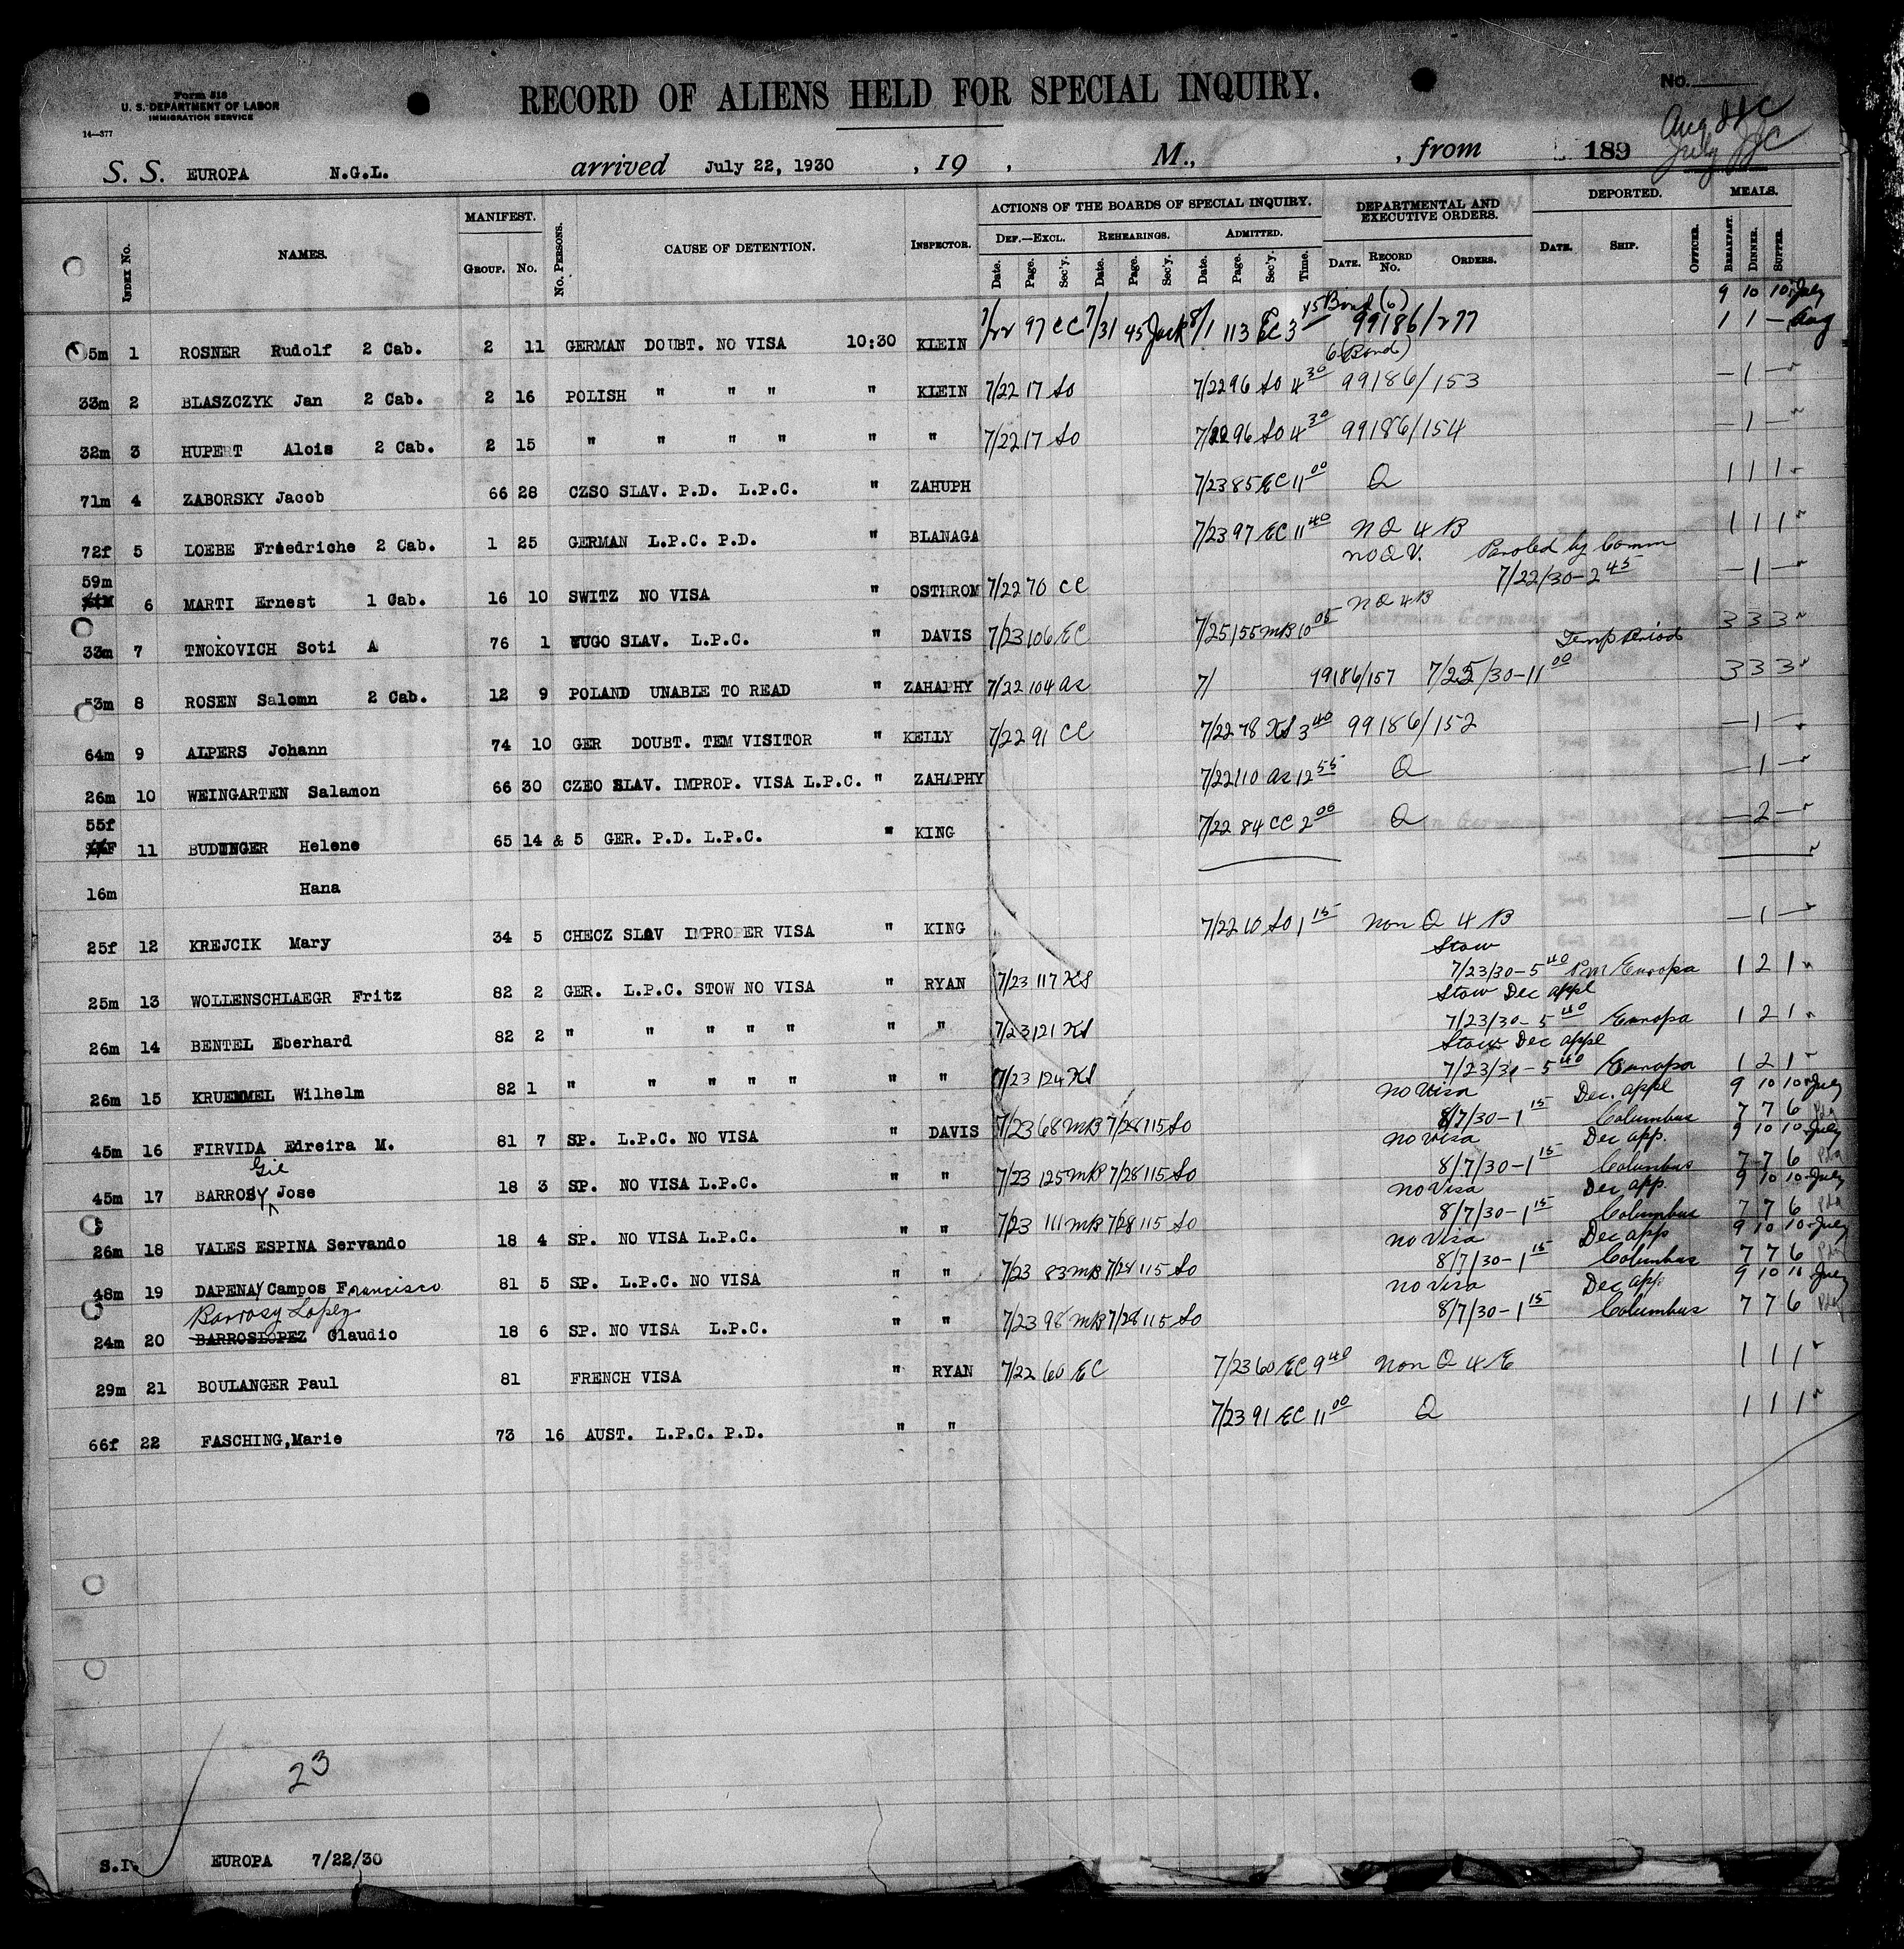 Form 518
U. S. DEPARTMENT OF LABOR
IMMIGRATION SERVICE
14—377
RECORD OF ALIENS HELD FOR SPECIAL INQUIRY.
No.
Aug JJC
July JJC
S. S. EUROPA N.G.L. arrived July 22, 1930 , 19 , M., , from 189
INDEX No. NAMES. MANIFEST. GROUP. No. No. PERSONS. CAUSE OF DETENTION. INSPECTOR. ACTIONS OF THE BOARDS OF SPECIAL INQUIRY. DEPARTMENTAL AND EXECUTIVE ORDERS. DEPORTED. MEALS.
DEF.—EXCL. REHEARINGS. ADMITTED.
Date. Page. Sec'y. Date. Page. Sec'y. Date. Page. Sec'y. Time. DATE. RECORD No. ORDERS. DATE. SHIP. OFFICER. BREAKFAST. DINNER. SUPPER.
45 Bond (6) 9 10 10 July
5m 1 ROSNER Rudolf 2 Cab. 2 11 GERMAN DOUBT. NO VISA 10:30 KLEIN 7/22 97 CC 7/31 45 Jack 8/1 113 EC 3 99186/277 1 1 — Aug
6 (Bond)
33m 2 BLASZCZYK Jan 2 Cab. 2 16 POLISH " " " " KLEIN 7/22 17 SO 7/22 96 SO 4 30 99186/153 — 1 —
32m 3 HUPERT Alois 2 Cab. 2 15 " " " " " " 7/22 17 SO 7/22 96 SO 4 30 99186/154 — 1 —
71m 4 ZABORSKY Jacob 66 28 CZSO SLAV. P.D. L.P.C. " ZAHUPH 7/23 85 EC 11 00 Q 1 1 1
72f 5 LOEBE Friedriche 2 Cab. 1 25 GERMAN L.P.C. P.D. " BLANAGA 7/23 97 EC 11 40 N Q 4 B 1 1 1
no Q V. Paroled by Comm
59m 7/22/30-2 45
6 MARTI Ernest 1 Cab. 16 10 SWITZ NO VISA " OSTHROM 7/22 70 CC — 1 —
N Q 4 B
33m 7 TNOKOVICH Soti A 76 1 YUGO SLAV. L.P.C. " DAVIS 7/23 106 EC 7/25 155 MB 10 05 3 3 3
Temp Period
53m 8 ROSEN Salomn 2 Cab. 12 9 POLAND UNABLE TO READ " ZAHAPHY 7/22 104 as 7/ 99186/157 7/25/30-11 00 3 3 3
64m 9 ALPERS Johann 74 10 GER DOUBT. TEM VISITOR " KELLY 7/22 91 CC 7/22 78 KS 3 40 99186/152 — 1 —
26m 10 WEINGARTEN Salamon 66 30 CZEO SLAV. IMPROP. VISA L.P.C. " ZAHAPHY 7/22 110 as 12 55 Q — 1 —
55f
11 BUDINGER Helene 65 14 & 5 GER. P.D. L.P.C. " KING 7/22 84 CC 2 00 Q — 2 —
16m Hana
25f 12 KREJCIK Mary 34 5 CHECZ SLAV IMPROPER VISA " KING 7/22 10 SO 1 15 Non Q 4 B — 1 —
Stow
25m 13 WOLLENSCHLAEGR Fritz 82 2 GER. L.P.C. STOW NO VISA " RYAN 7/23 117 KS 7/23/30-5 40 PM Europa 1 2 1
Stow Dec appl
26m 14 BENTEL Eberhard 82 2 " " " " " " " 7/23 121 KS 7/23/30-5 40 Europa 1 2 1
Stow Dec appl
26m 15 KRUEMMEL Wilhelm 82 1 " " " " " " " 7/23 124 KS 7/23/30-5 40 Europa 1 2 1
no Visa Dec. appl 9 10 10 July
45m 16 FIRVIDA Edreira M. 81 7 SP. L.P.C. NO VISA " DAVIS 7/23 68 MB 7/28 115 SO 8/7/30-1 15 Columbus 7 7 6
no Visa Dec app. 9 10 10 July
Gil
45m 17 BARROSY Jose 18 3 SP. NO VISA L.P.C. " " 7/23 125 MB 7/28 115 SO 8/7/30-1 15 Columbus 7 7 6
no Visa Dec app. 9 10 10 July
26m 18 VALES ESPINA Servando 18 4 SP. NO VISA L.P.C. " " 7/23 111 MB 7/28 115 SO 8/7/30-1 15 Columbus 7 7 6
no Visa Dec app 9 10 10 July
48m 19 DAPENAY Campos Francisco 81 5 SP. L.P.C. NO VISA " " 7/23 83 MB 7/28 115 SO 8/7/30-1 15 Columbus 7 7 6
no Visa Dec app 9 10 10 July
Barrosy Lopez
24m 20 BARROSLOPEZ Claudio 18 6 SP. NO VISA L.P.C. " " 7/23 98 MB 7/28 115 SO 8/7/30-1 15 Columbus 7 7 6
29m 21 BOULANGER Paul 81 FRENCH VISA " RYAN 7/22 60 EC 7/23 60 EC 9 40 Non Q 4 E 1 1 1
66f 22 FASCHING,Marie 73 16 AUST. L.P.C. P.D. " " 7/23 91 EC 11 00 Q 1 1 1
23
S.I. EUROPA 7/22/30